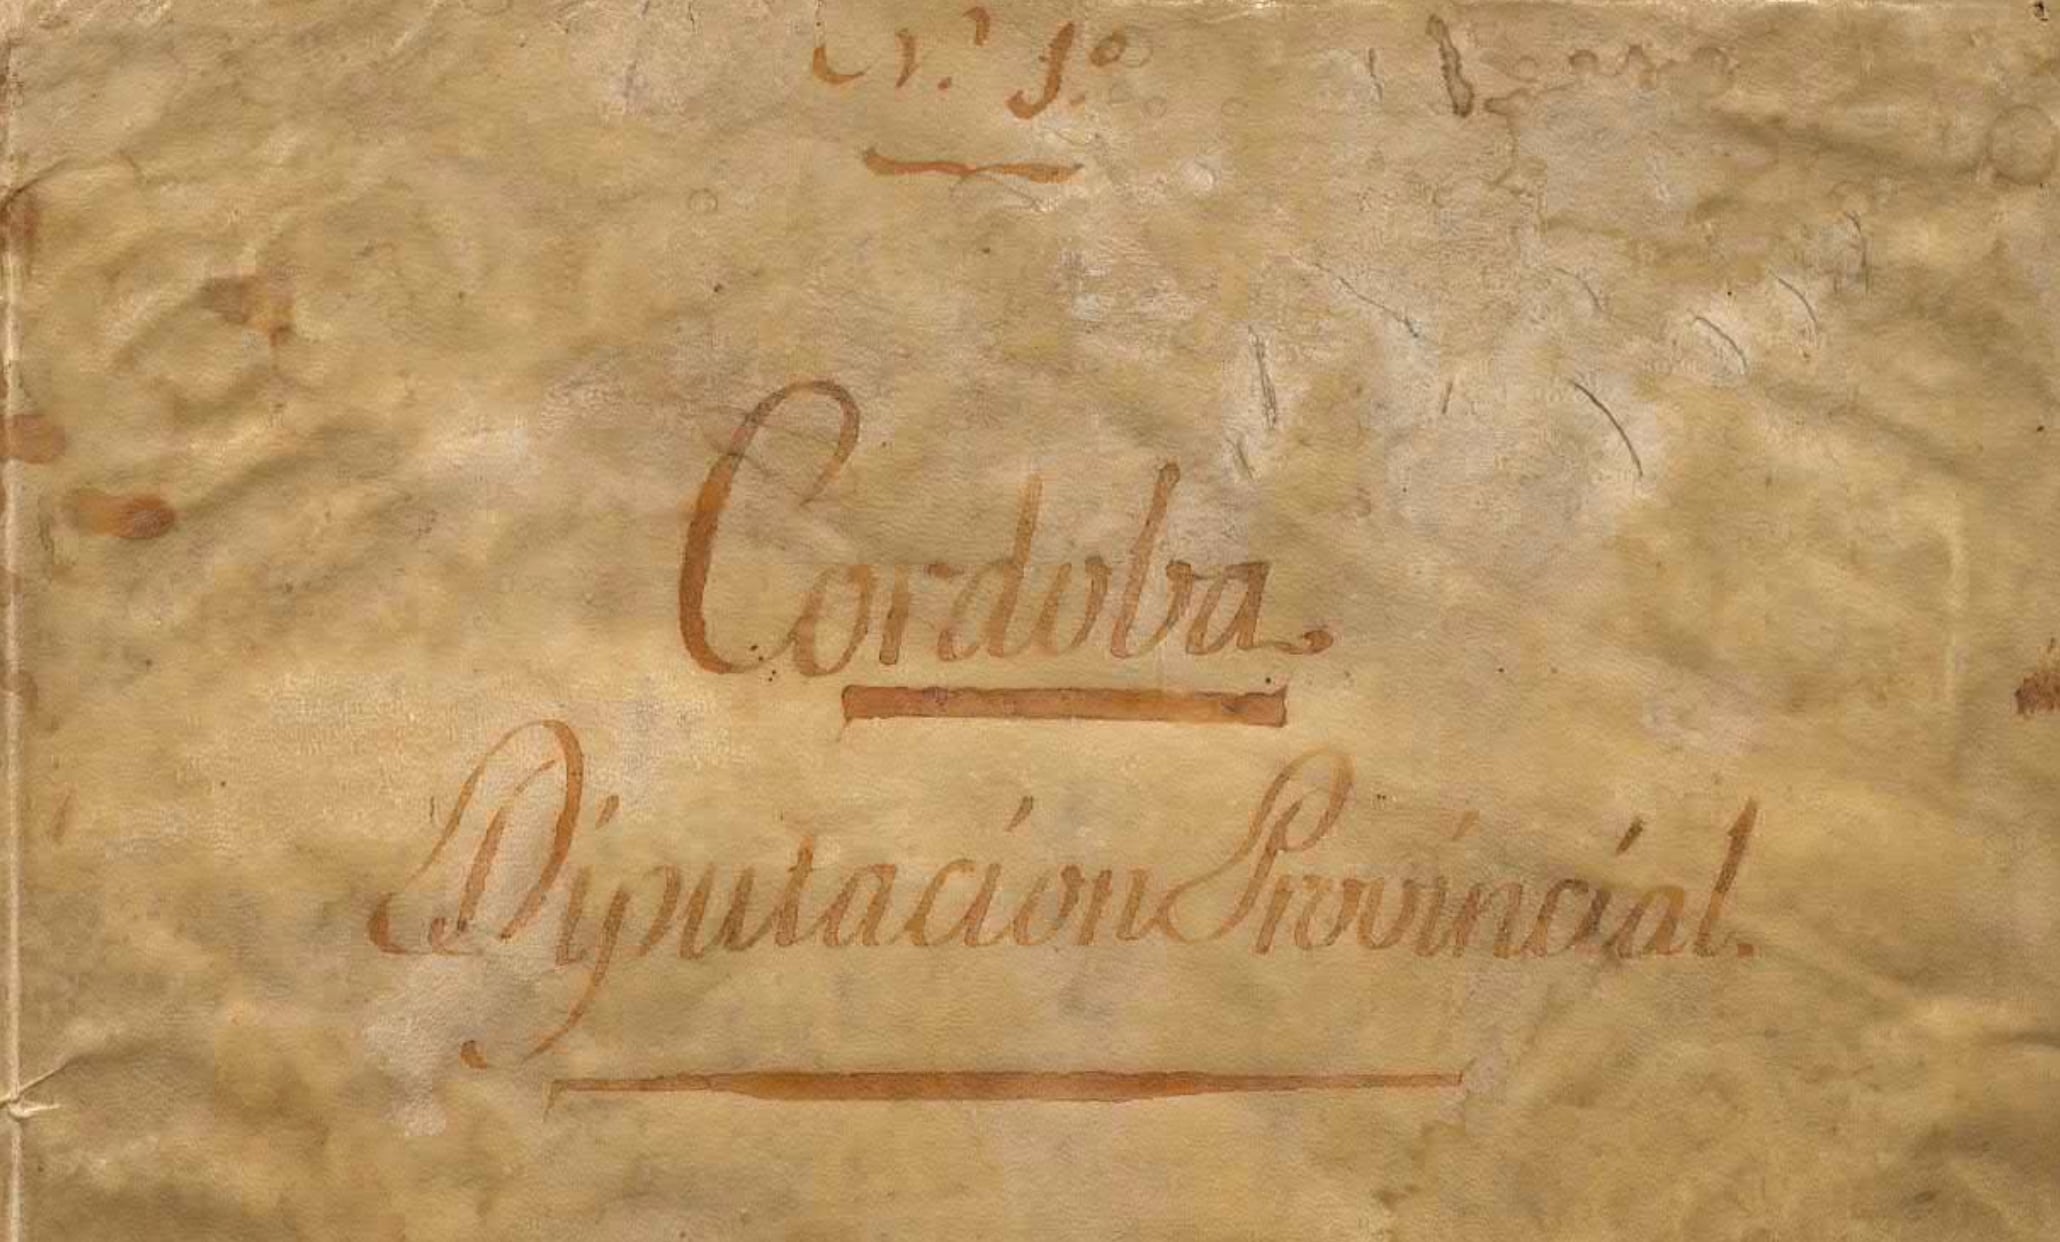 Cordoba.
Diputación Provincial.